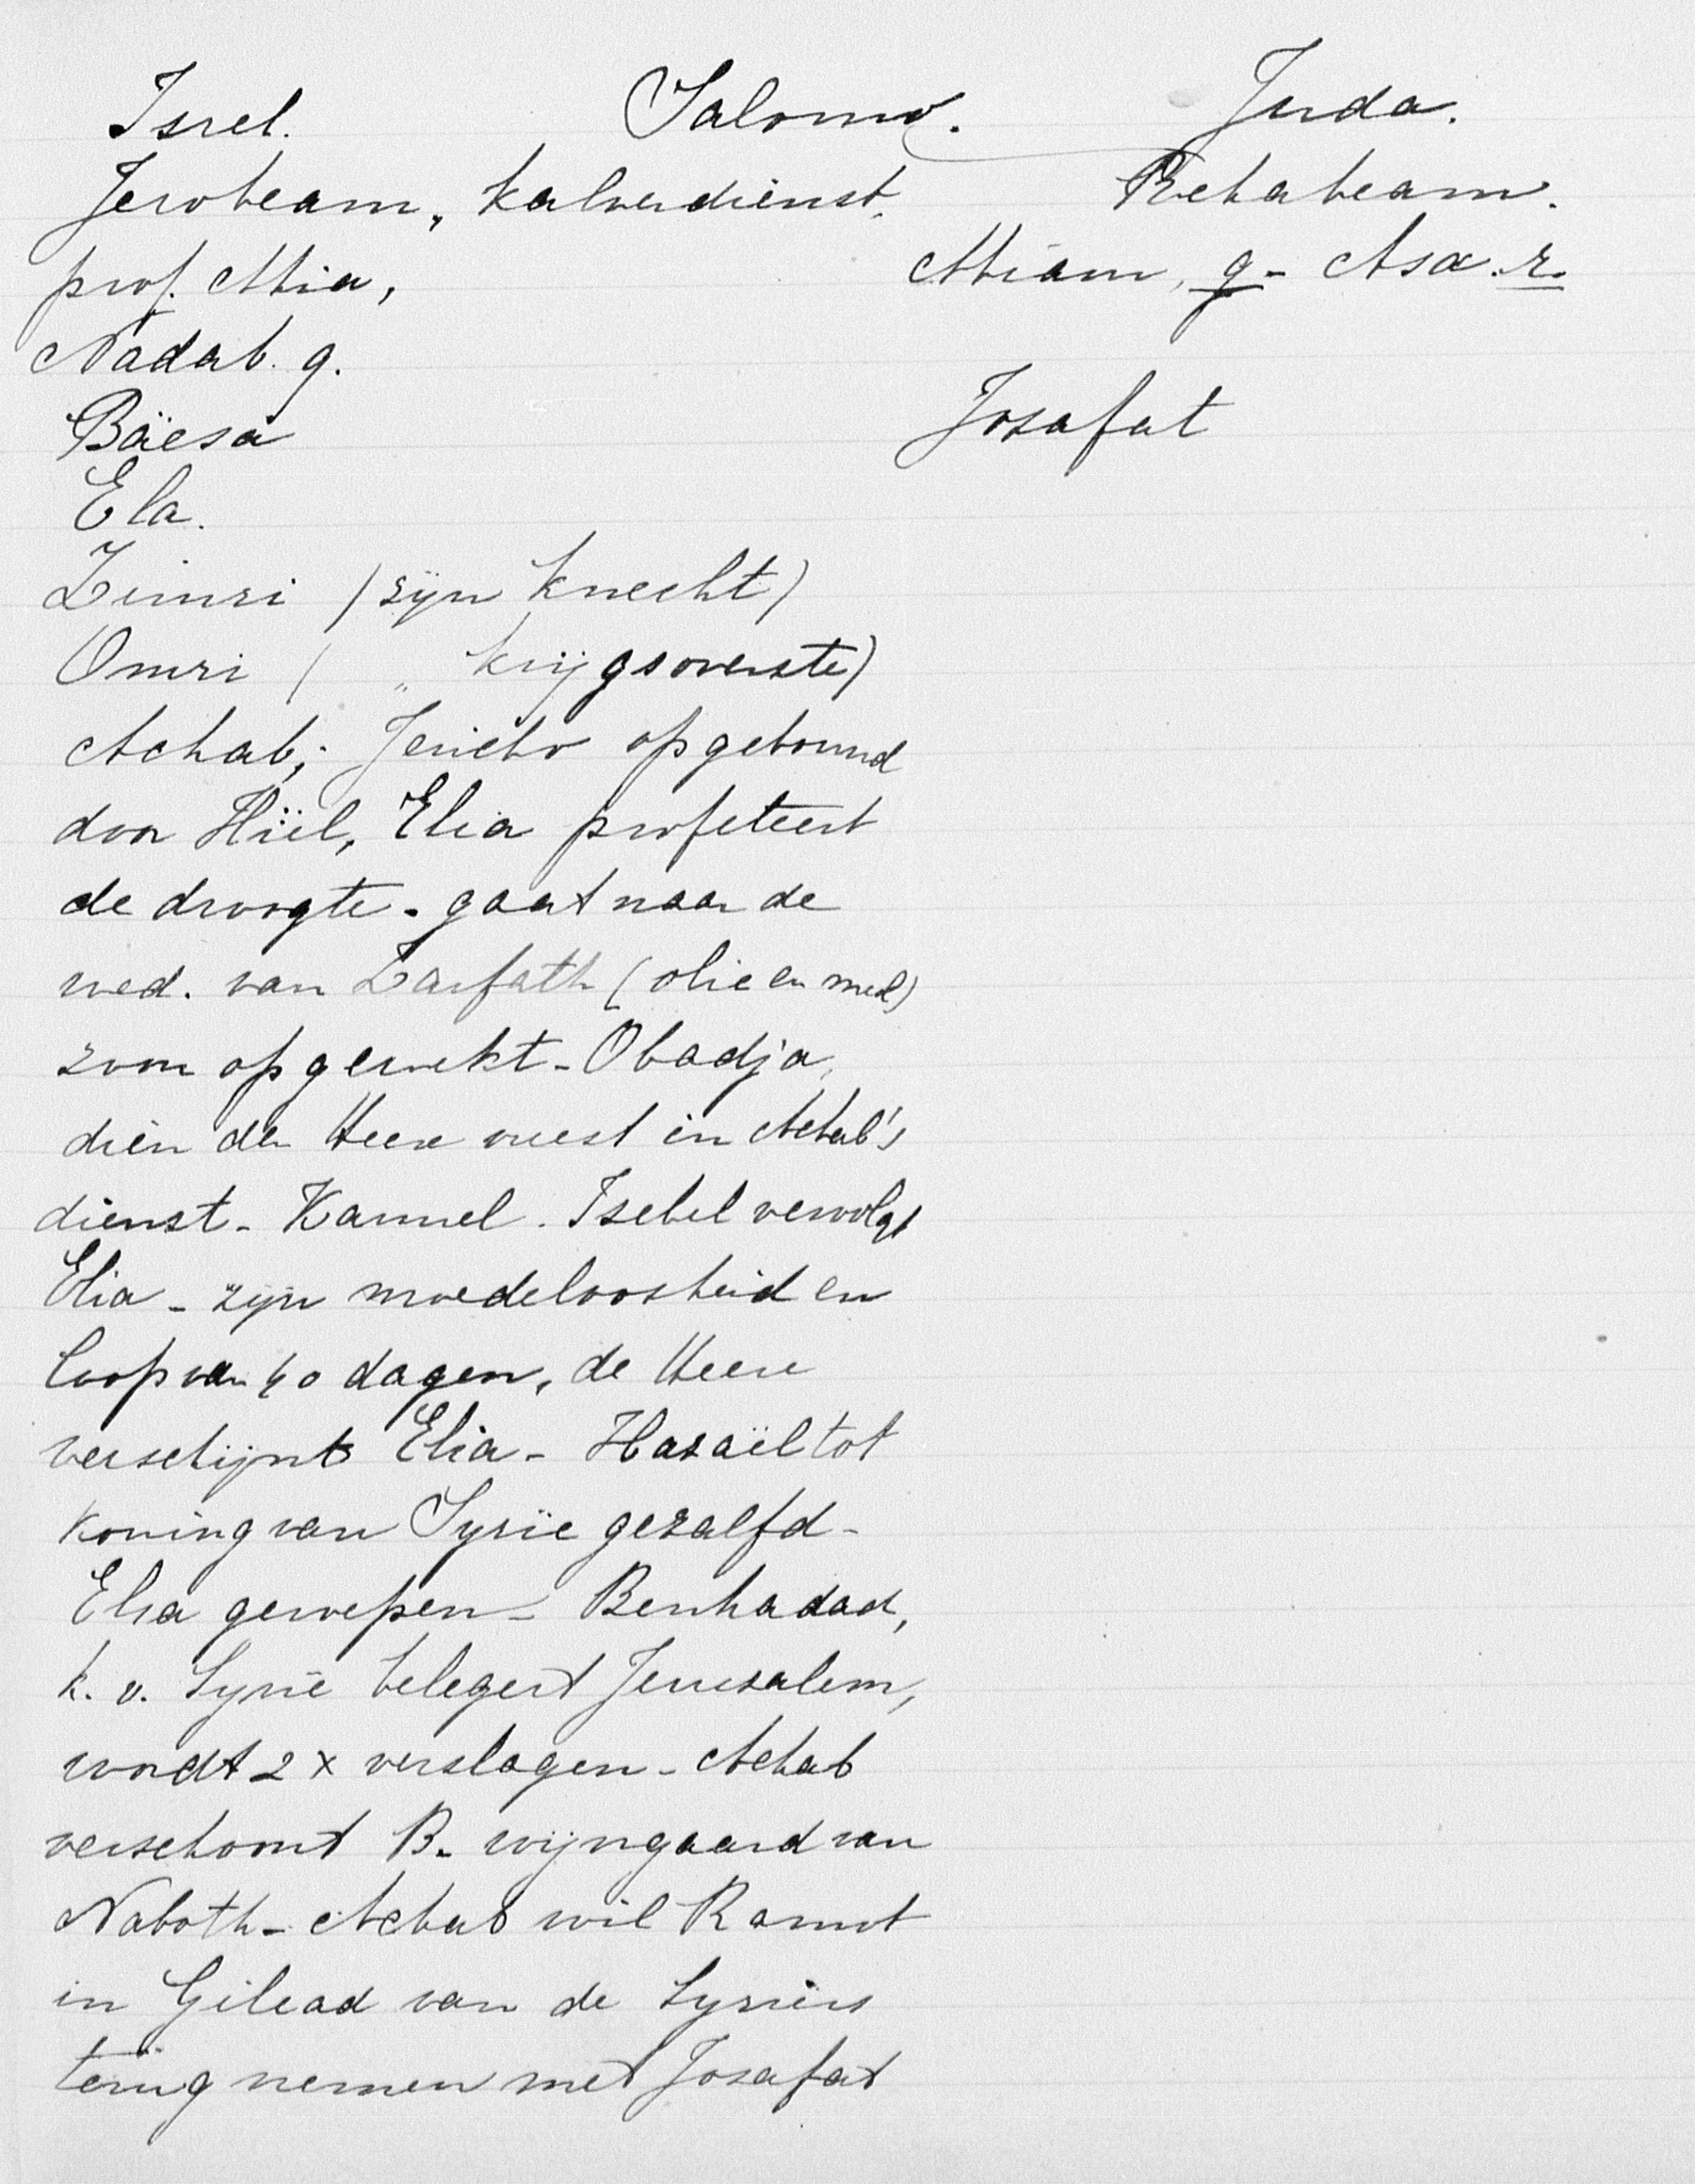 Isrel. Salomo. Juda.
Jerobeam, kalverdienst, Rehabeam.
prof. Ahia, Abiam, g - Asa. r.
Nadab. g.
Bäesa Josafat
Ela.
Zimri (zijn knecht)
Omri ( " krijgsoverste)
Achab; Jericho opgebouwd
door Hiël, Elia profeteert
de droogte - gaat naar de
wed. van Zarfath (olie en meel)
zoon opgewekt - Obadja,
dien den Heere vreest in Achab's
dienst - Karmel. Isebel vervolgt
Elia - zijn moedeloosheid en
loop van 40 dagen, de Heere
verschijnt Elia - Hazaël tot
koning van Syrië gezalfd -
Elisa geroepen - Benhadad,
k. v. Syrië belegert Jeruzalem,
wordt 2 x verslagen - Achab
verschoont B. wijngaard van
Naboth - Achab wil Ramot
in Gilead van de Syriërs
terug nemen met Josafat